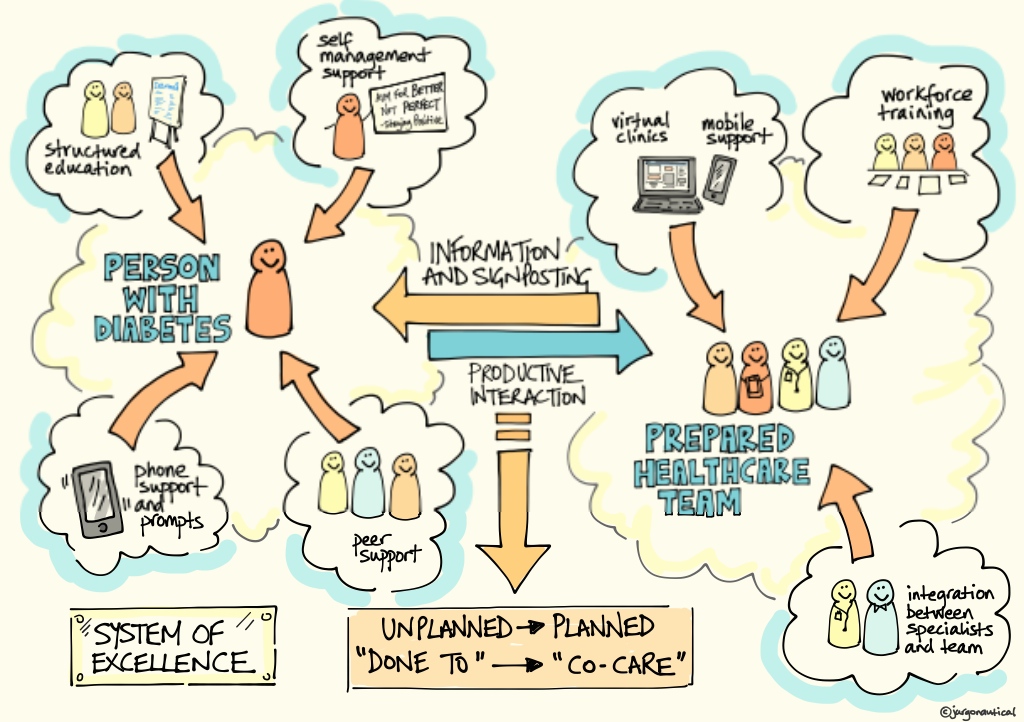 structured
education
self
management
support
AIM FOR BETTER
NOT PERFECT
- Staying Positive
virtual
clinics
mobile
support
workforce
training
PERSON
WITH
DIABETES
INFORMATION
AND SIGNPOSTING
PRODUCTIVE
INTERACTION
PREPARED
HEALTHCARE
TEAM
phone
support
and
prompts
peer
support
integration
between
specialists
and team
SYSTEM OF
EXCELLENCE
UNPLANNED → PLANNED
"DONE TO" → "CO-CARE"
©jargonautical